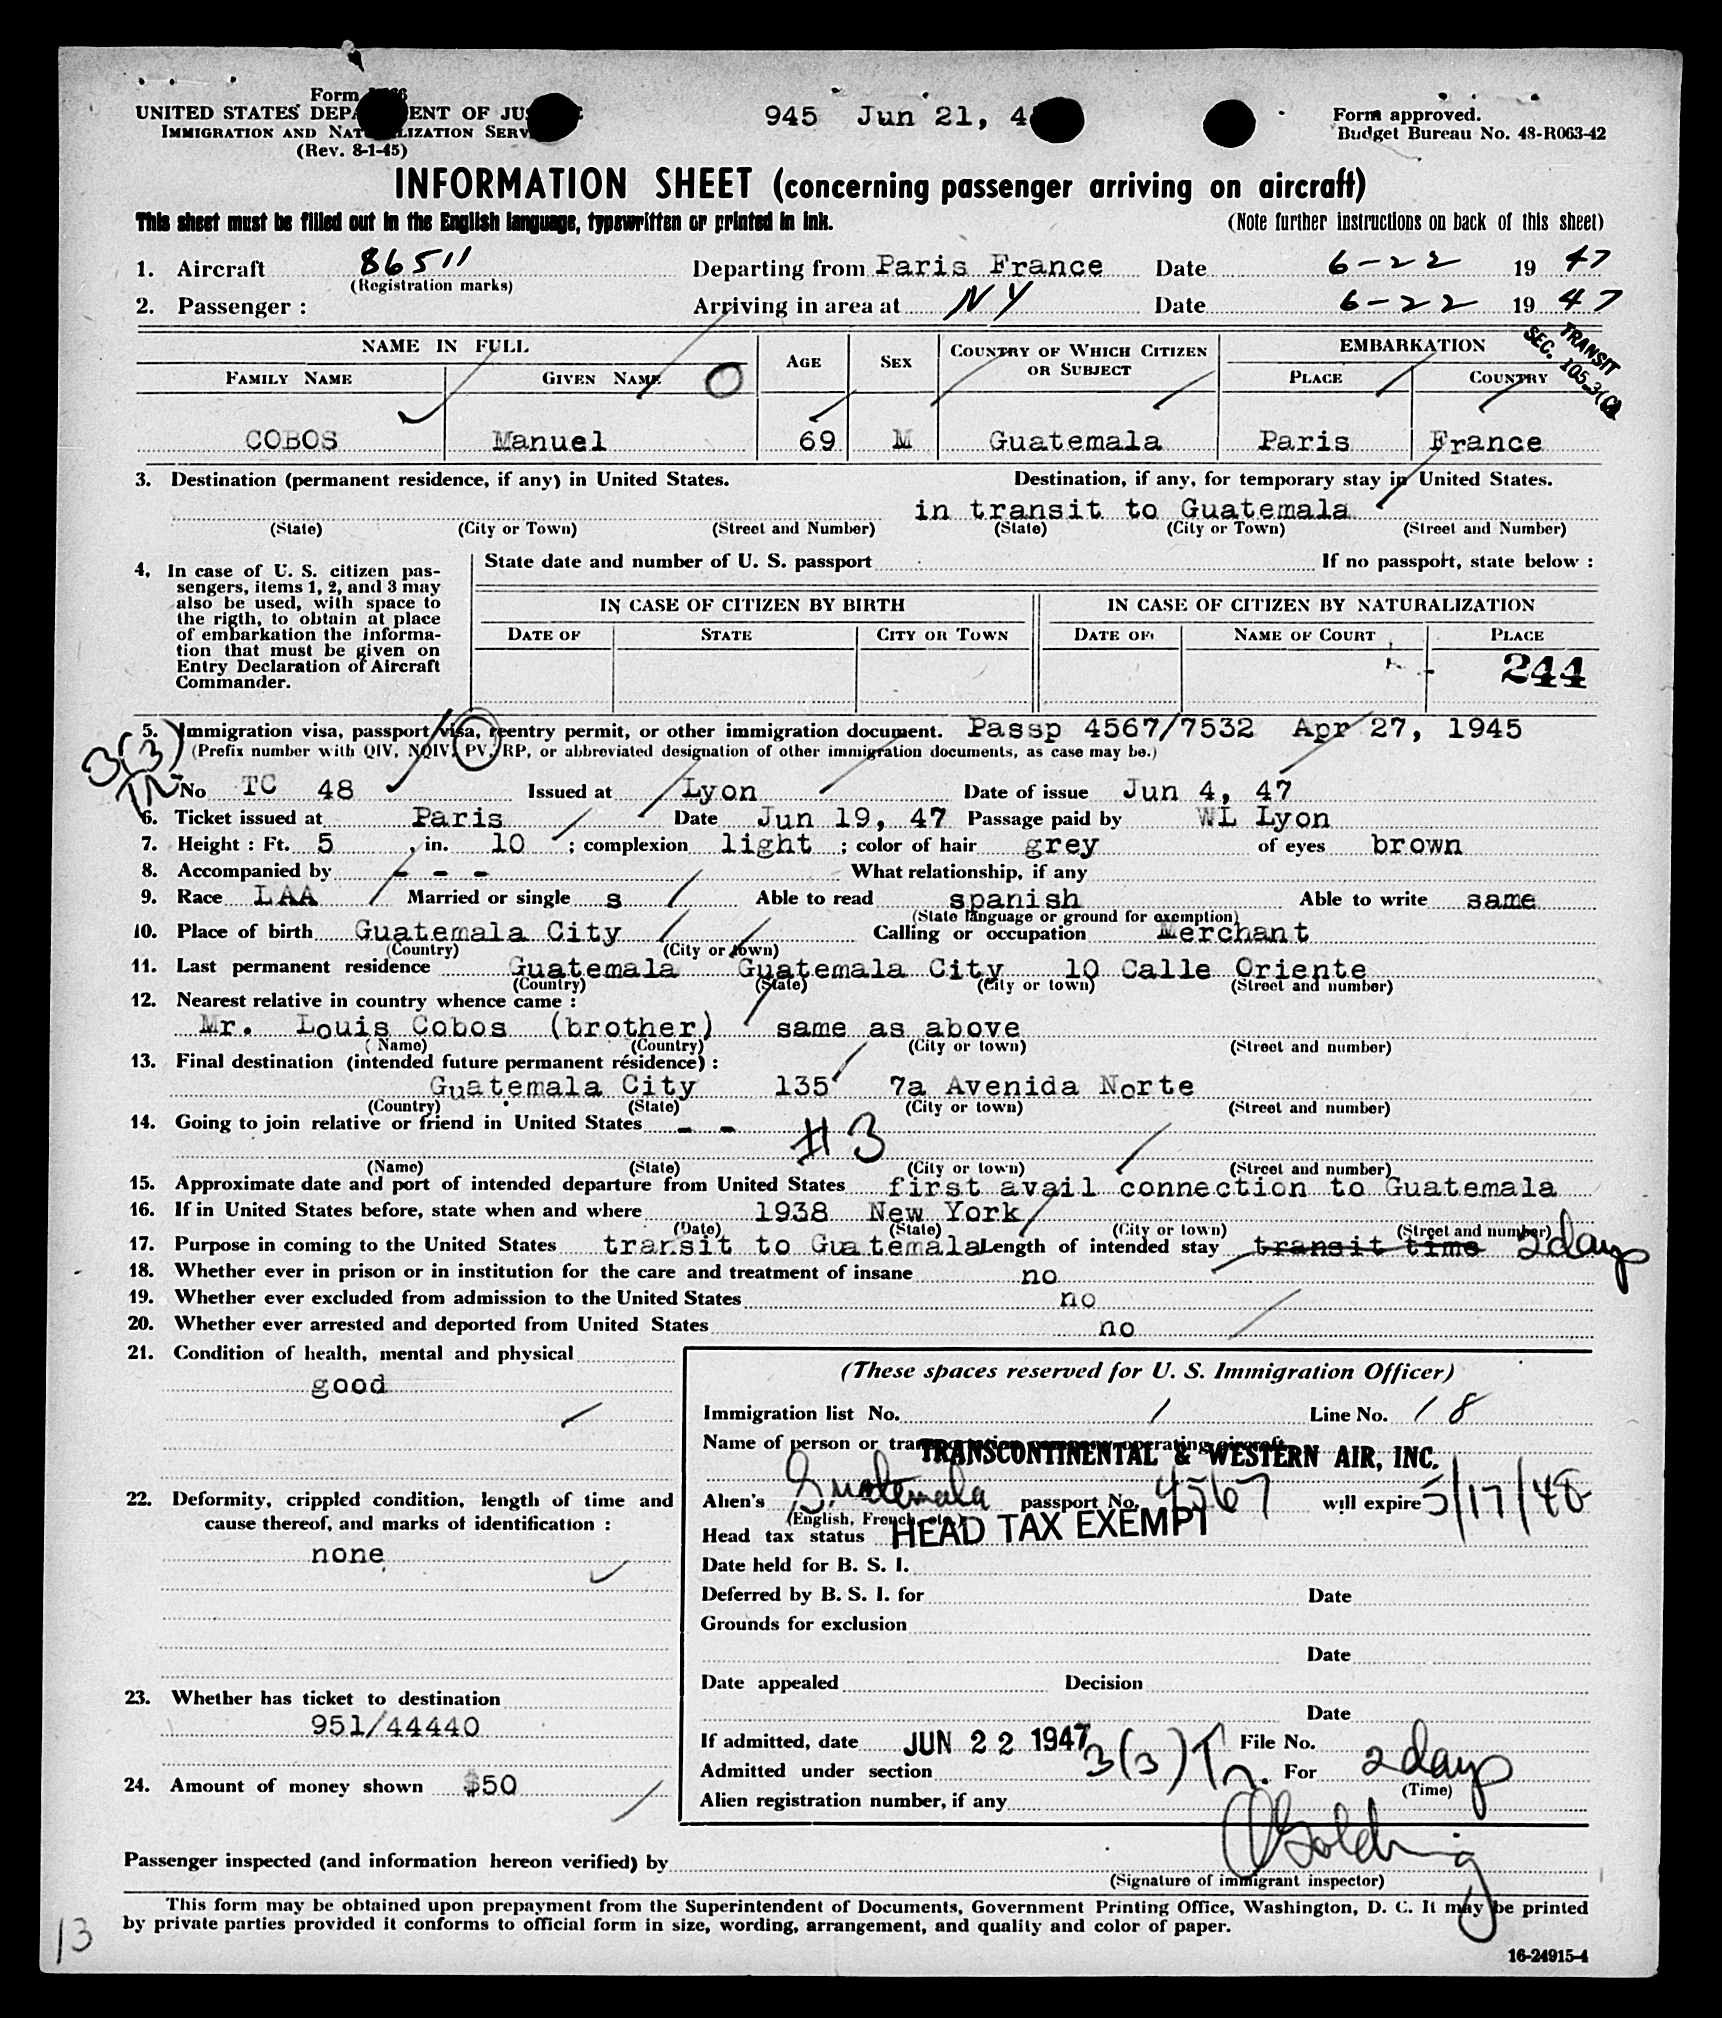 Form
UNITED STATES DEPA ENT OF JUS
IMMIGRATION AND NAT LIZATION SERV
(Rev. 8-1-45)
945 Jun 21, 4
Form approved.
Budget Bureau No. 43-R063-42
INFORMATION SHEET (concerning passenger arriving on aircraft)
This sheet must be filled out in the English language, typewritten or printed in ink.
(Note further instructions on back of this sheet)
1. Aircraft 86511 Departing from Paris France Date 6-22 19 47
(Registration marks)
2. Passenger : Arriving in area at NY Date 6-22 19 47
TRANSIT
SEC. 105.3(C)
NAME IN FULL AGE SEX COUNTRY OF WHICH CITIZEN OR SUBJECT EMBARKATION
FAMILY NAME GIVEN NAME PLACE COUNTRY
COBOS Manuel 69 M Guatemala Paris France
3. Destination (permanent residence, if any) in United States. Destination, if any, for temporary stay in United States.
in transit to Guatemala
(State) (City or Town) (Street and Number) (State) (City or Town) (Street and Number)
4. In case of U. S. citizen pas-
sengers, items 1, 2, and 3 may
also be used, with space to
the rigth, to obtain at place
of embarkation the informa-
tion that must be given on
Entry Declaration of Aircraft
Commander.
State date and number of U. S. passport If no passport, state below :
IN CASE OF CITIZEN BY BIRTH IN CASE OF CITIZEN BY NATURALIZATION
DATE OF STATE CITY OR TOWN DATE OF NAME OF COURT PLACE
244
5. Immigration visa, passport visa, reentry permit, or other immigration document. Passp 4567/7532 Apr 27, 1945
(Prefix number with QIV, NQIV, PV, RP, or abbreviated designation of other immigration documents, as case may be.)
3(3)
TR
No TC 48 Issued at Lyon Date of issue Jun 4, 47
6. Ticket issued at Paris Date Jun 19, 47 Passage paid by WL Lyon
7. Height : Ft. 5 , in. 10 ; complexion light ; color of hair grey of eyes brown
8. Accompanied by - - - What relationship, if any
9. Race LAA Married or single s Able to read spanish Able to write same
(State language or ground for exemption)
10. Place of birth Guatemala City Calling or occupation Merchant
(Country) (City or town)
11. Last permanent residence Guatemala Guatemala City 10 Calle Oriente
(Country) (State) (City or town) (Street and number)
12. Nearest relative in country whence came :
Mr. Louis Cobos (brother) same as above
(Name) (Country) (City or town) (Street and number)
13. Final destination (intended future permanent résidence) :
Guatemala City 135 7a Avenida Norte
(Country) (State) (City or town) (Street and number)
14. Going to join relative or friend in United States - -
#3
(Name) (State) (City or town) (Street and number)
15. Approximate date and port of intended departure from United States first avail connection to Guatemala
16. If in United States before, state when and where 1938 New York
(Date) (State) (City or town) (Street and number)
17. Purpose in coming to the United States transit to Guatemala Length of intended stay transit time 2 days
18. Whether ever in prison or in institution for the care and treatment of insane no
19. Whether ever excluded from admission to the United States no
20. Whether ever arrested and deported from United States no
21. Condition of health, mental and physical
good
22. Deformity, crippled condition, length of time and
cause thereof, and marks of identification :
none
23. Whether has ticket to destination
951/44440
24. Amount of money shown $50
(These spaces reserved for U. S. Immigration Officer)
Immigration list No. 1 Line No. 18
Name of person or transportation company operating aircraft
TRANSCONTINENTAL & WESTERN AIR, INC.
Alien's Guatemala passport No. 4567 will expire 5/17/48
(English, French, etc.)
Head tax status HEAD TAX EXEMPT
Date held for B. S. I.
Deferred by B. S. I. for Date
Grounds for exclusion
Date
Date appealed Decision
Date
If admitted, date JUN 22 1947 File No.
Admitted under section 3(3) Tr. For 2 days
(Time)
Alien registration number, if any
Passenger inspected (and information hereon verified) by
(Signature of immigrant inspector)
This form may be obtained upon prepayment from the Superintendent of Documents, Government Printing Office, Washington, D. C. It may be printed
by private parties provided it conforms to official form in size, wording, arrangement, and quality and color of paper.
13
16-24915-4